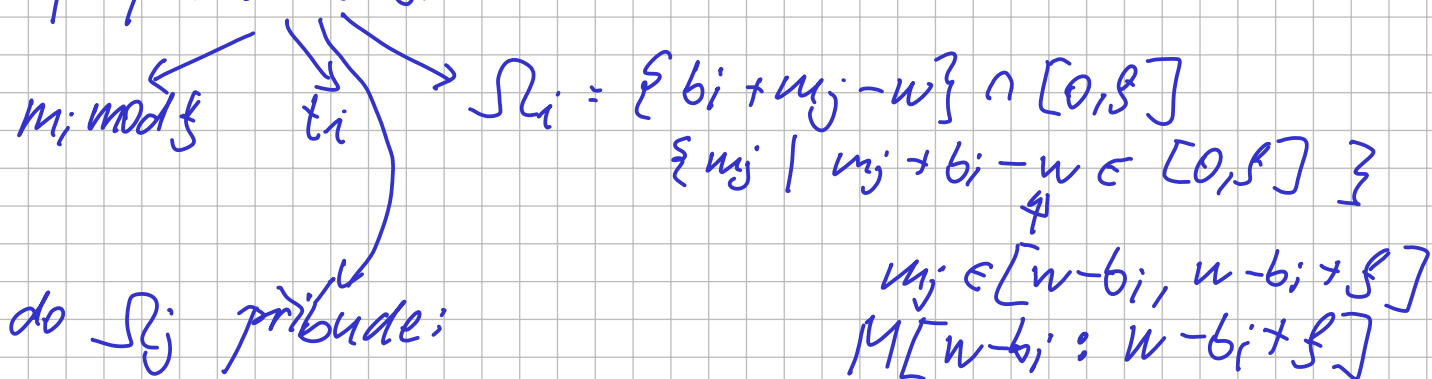 m_i mod f   t_i   Ω_i = {b_i + m_j - w} ∩ [0, f]
{m_j | m_j + b_i - w ∈ [0, f]}
m_j ∈ [w - b_i, w - b_i + f]
do Ω_j pribude:   M[w - b_i : w - b_i + f]